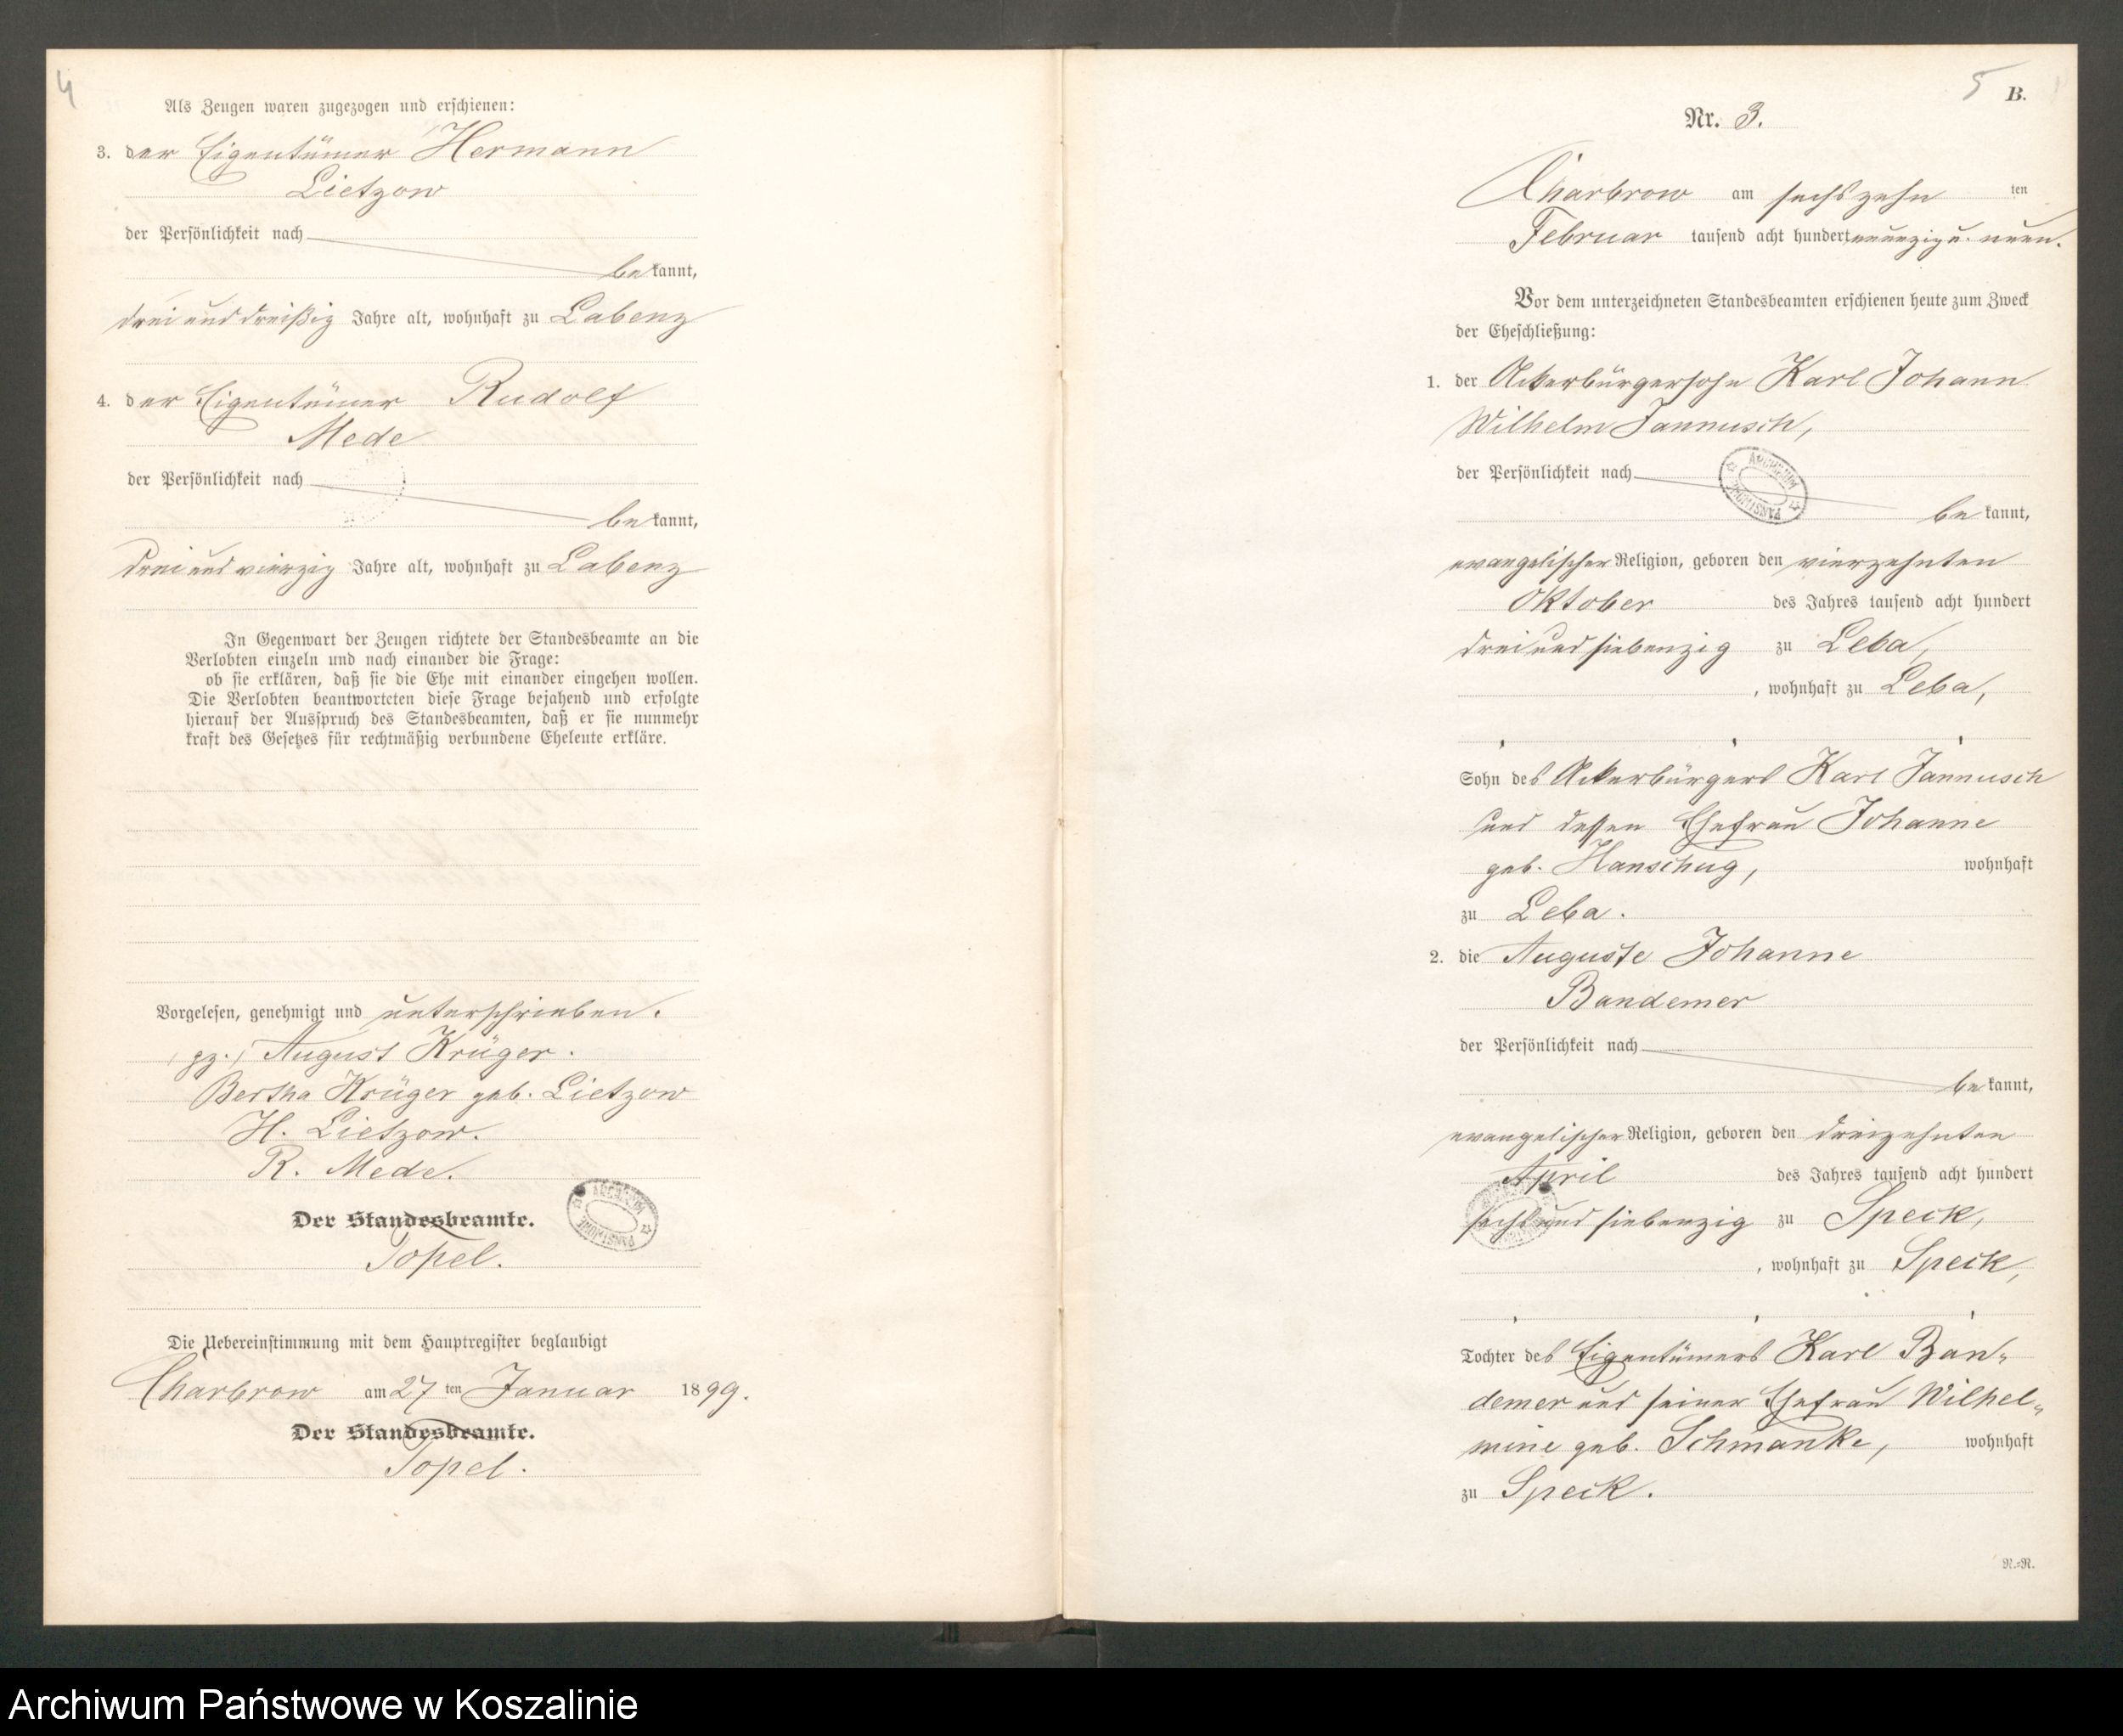 4
Als Zeugen waren zugezogen und erschienen:
3. der Eigentümer Hermann
Lietzow
der Persönlichkeit nach
bekannt,
drei und dreißig Jahre alt, wohnhaft zu Labenz
4. der Eigentümer Rudolf
Mede
der Persönlichkeit nach
bekannt,
drei und vierzig Jahre alt, wohnhaft zu Labenz
In Gegenwart der Zeugen richtete der Standesbeamte an die
Verlobten einzeln und nach einander die Frage:
ob sie erklären, daß sie die Ehe mit einander eingehen wollen.
Die Verlobten beantworteten diese Frage bejahend und erfolgte
hierauf der Ausspruch des Standesbeamten, daß er sie nunmehr
kraft des Gesetzes für rechtmäßig verbundene Eheleute erkläre.
Vorgelesen, genehmigt und unterschrieben.
gz. August Krüger.
Bertha Krüger geb. Lietzow
H. Lietzow.
R. Mede.
Der Standesbeamte.
Topel.
ARCHIWUM PAŃSTWOWE
Die Uebereinstimmung mit dem Hauptregister beglaubigt
Charbrow am 27 ten Januar 1899.
Der Standesbeamte.
Topel.
5
B.
Nr. 3.
Charbrow am sechszehn ten
Februar tausend acht hundert neunzig u. neun.
Vor dem unterzeichneten Standesbeamten erschienen heute zum Zweck
der Eheschließung:
1. der Ackerbürgersohn Karl Johann
Wilhelm Jannusch,
der Persönlichkeit nach
ARCHIWUM PAŃSTWOWE
bekannt,
evangelischer Religion, geboren den vierzehnten
Oktober des Jahres tausend acht hundert
drei und siebenzig zu Leba,
, wohnhaft zu Leba,
Sohn des Ackerbürgers Karl Jannusch
und dessen Ehefrau Johanne
geb. Hanschug, wohnhaft
zu Leba.
2. die Auguste Johanne
Bandemer
der Persönlichkeit nach
bekannt,
evangelischer Religion, geboren den dreizehnten
April des Jahres tausend acht hundert
sechs und siebenzig zu Speck,
, wohnhaft zu Speck,
Tochter des Eigentümers Karl Ban-
demer und seiner Ehefrau Wilhel-
mine geb. Schmanke, wohnhaft
zu Speck.
N.=N.
Archiwum Państwowe w Koszalinie